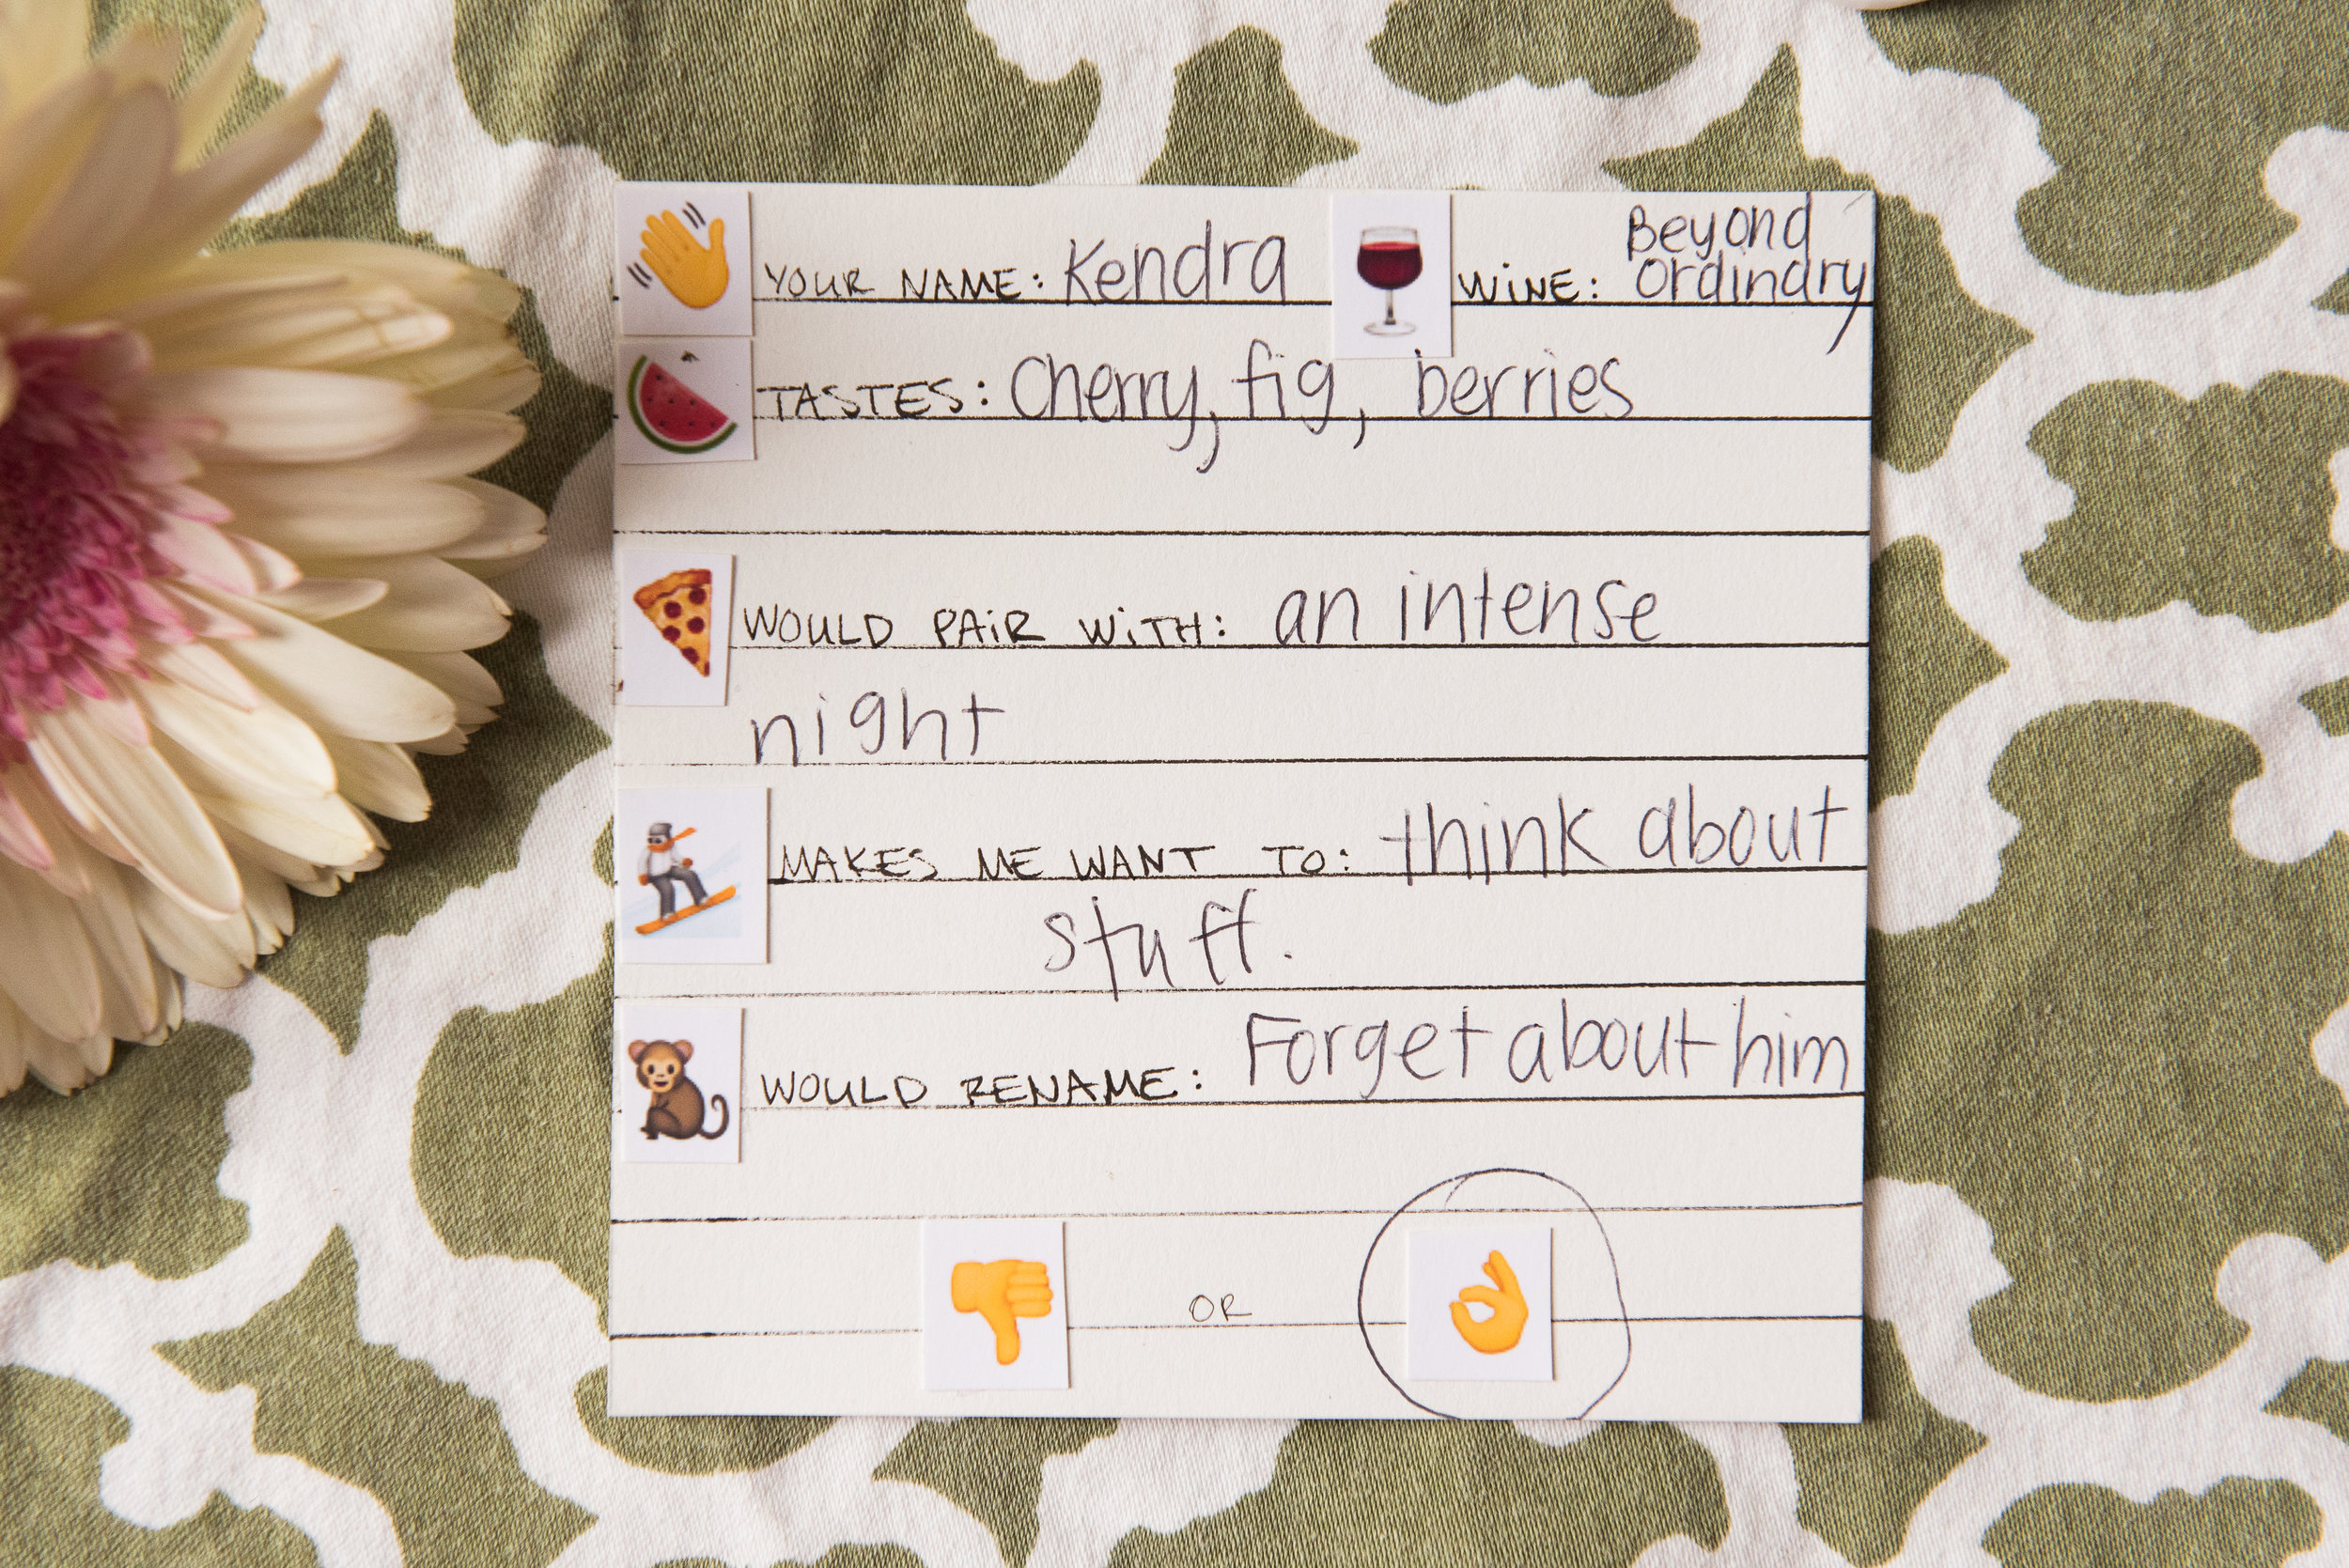 YOUR NAME: Kendra WINE: Beyond Ordinary
TASTES: Cherry, fig, berries
WOULD PAIR WITH: an intense
night
MAKES ME WANT TO: think about
stuff.
WOULD RENAME: Forget about him
OR